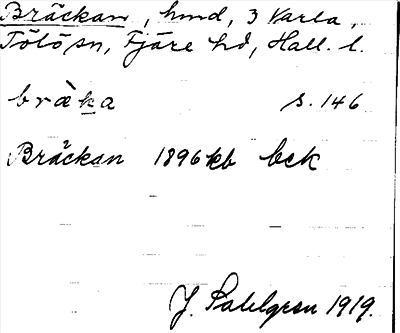 Bräckan, hmd, 3 Varla,
Tölö sn, Fjäre hd, Hall. l.
bràka s. 146
Bräckan 1896 kb bck
J. Sahlgren 1919.